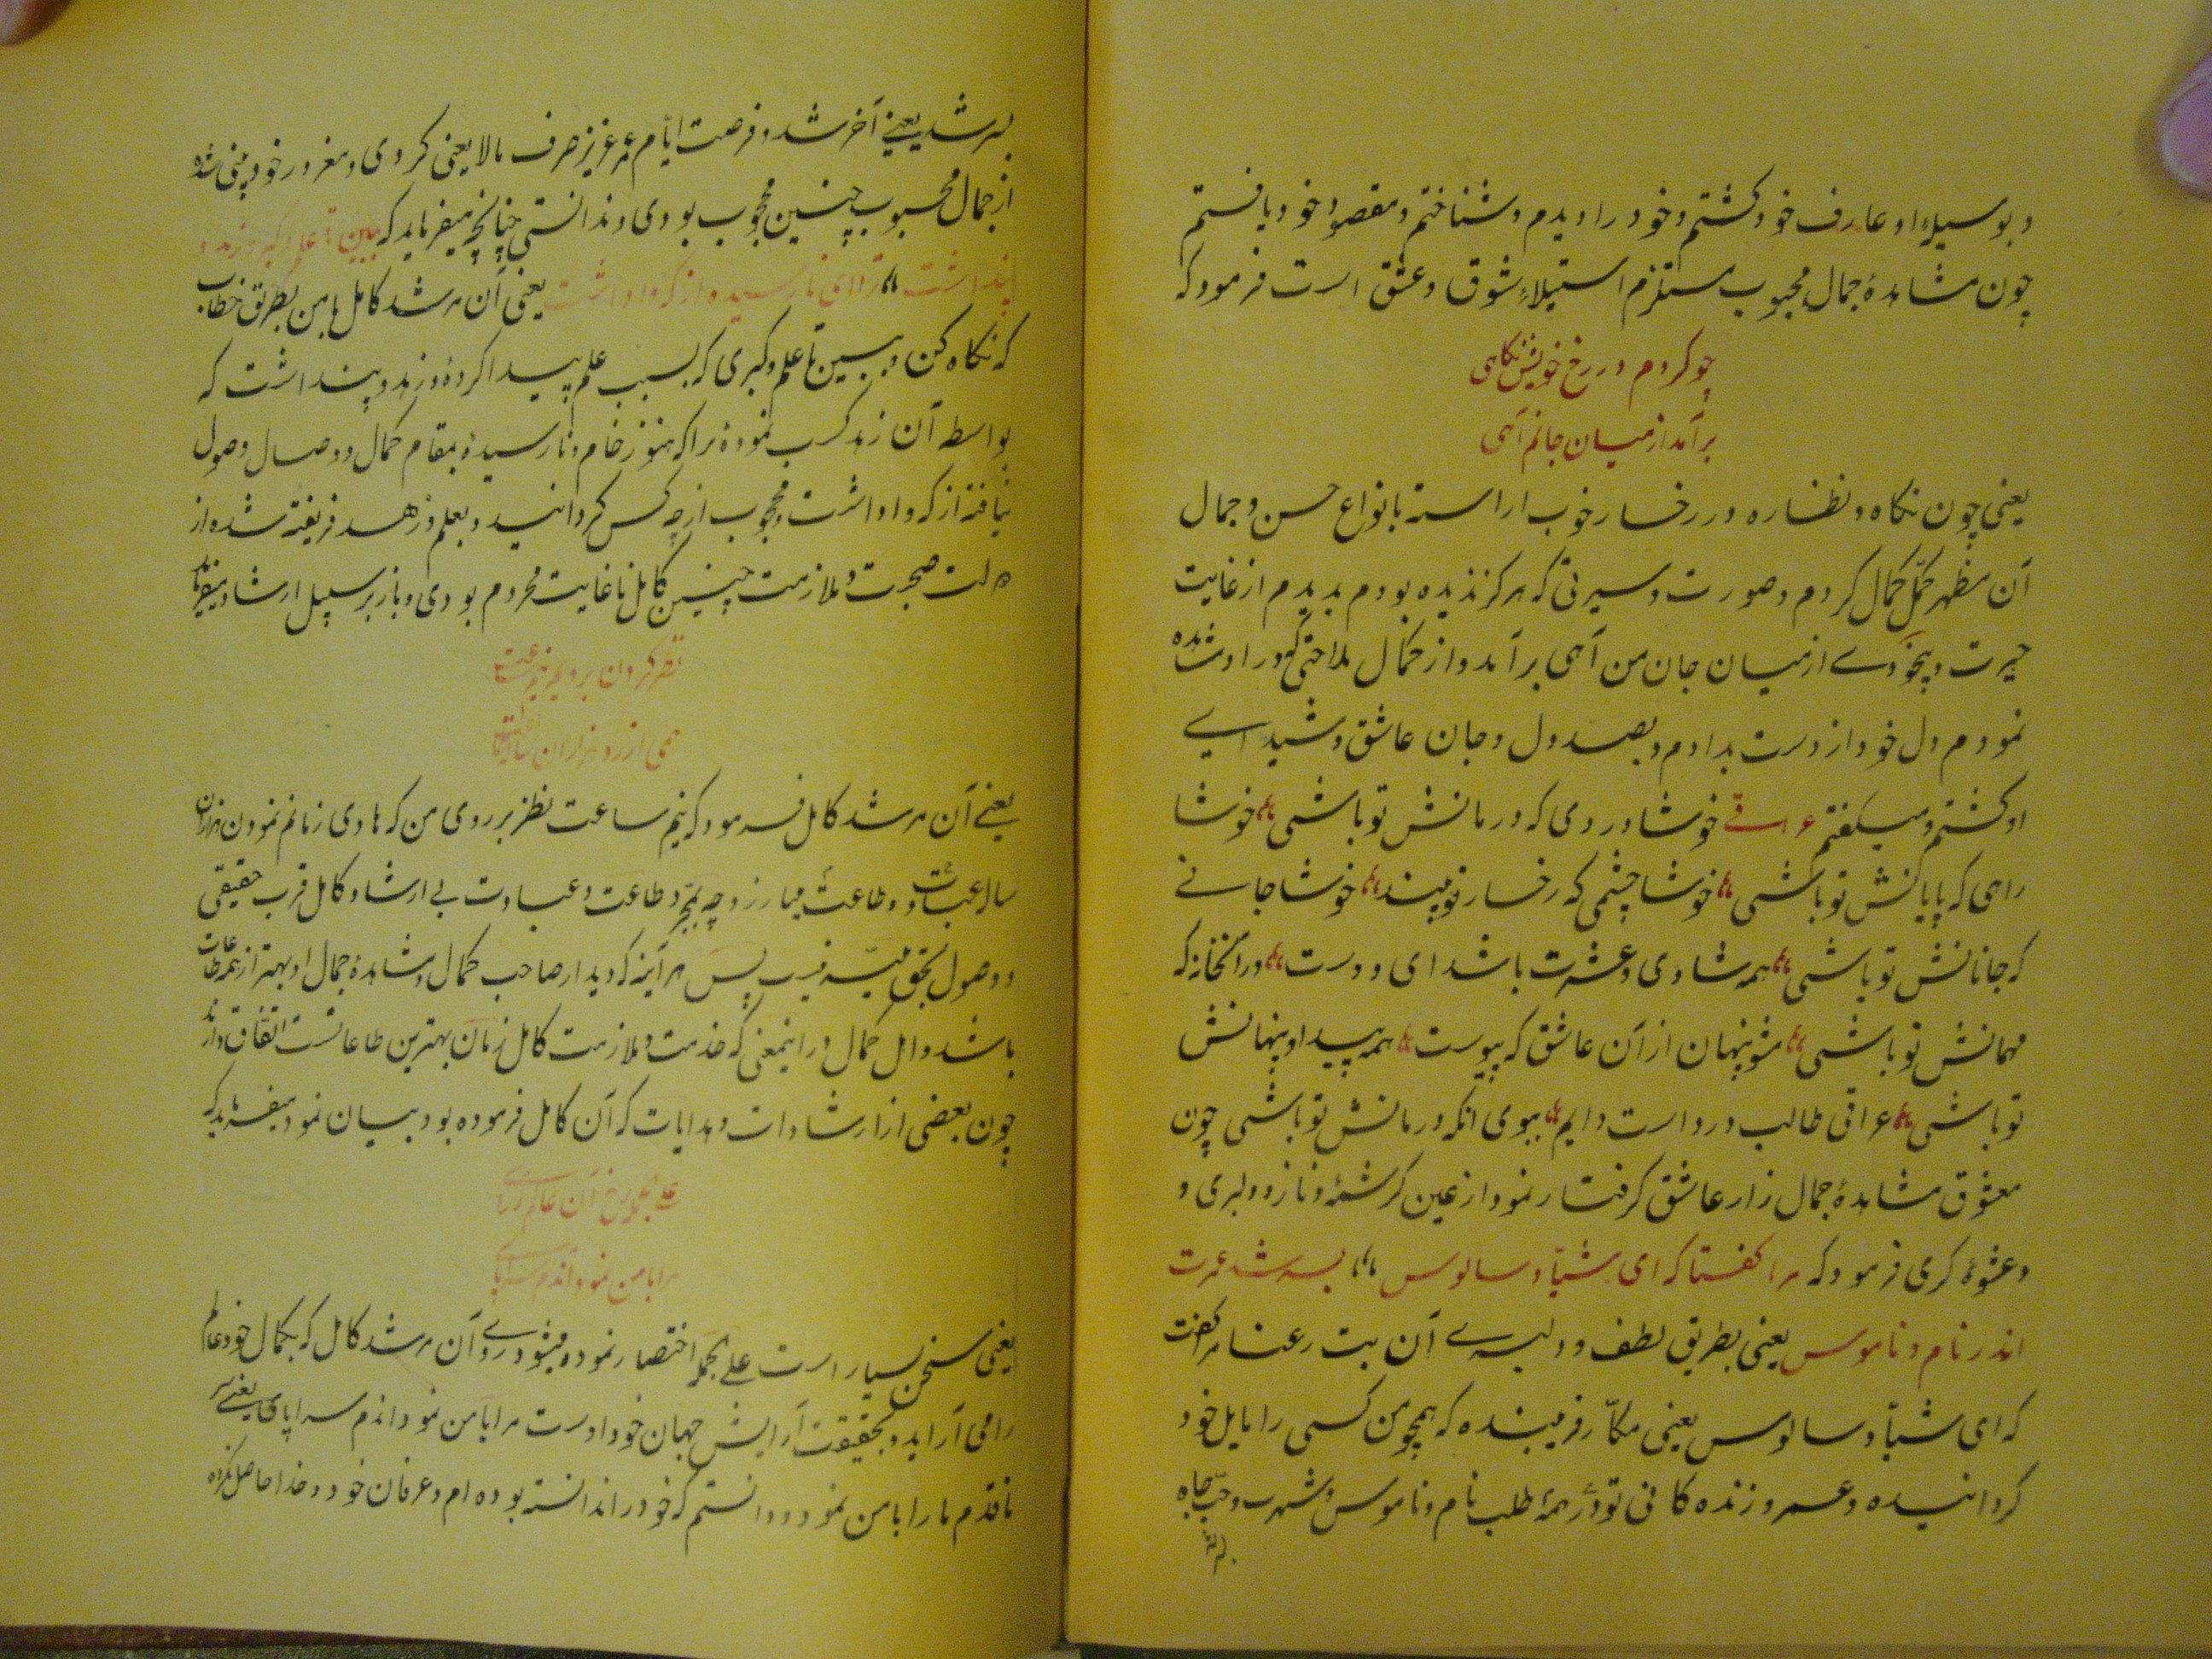 و بوسیلهٔ او عارف خود گشتم و خود را دیدم و شناختم و مقصود خود یافتم
چون مشاهدهٔ جمال محبوب مستلزم استیلاءِ شوق و عشق است فرمود که
چو کردم در رخ خوبش نگاهی
برآمد از میان جانم آهی
یعنی چون نگاه و نظاره در رخسار خوب اراسته بانواع حسن و جمال
آن مظهر مکمل کمال کردم و صورت و سیرتی که هرگز ندیده بودم بدیدم از غایت
حیرت و بیخودے از میان جان من آهی برآمد و از کمال ملاحتی که در او مشاهده
نمودم دل خود از دست بدادم و بصد دل و جان عاشق و شیدایے
او گشتم و میگفتم عراقے خوشا دردی که درمانش تو باشی خوشا
راهی که پایانش تو باشی خوشا چشمی که رخسار تو بیند خوشا جانے
که جانانش تو باشی همه شادی و عشرت باشد ای دوست در آنخانه که
مهمانش تو باشی مشو پنهان از آن عاشق که پیوست همه پیدا و پنهانش
تو باشی عراقی طالب درد است دایم ببوی انکه درمانش تو باشی چون
معشوق مشاهدهٔ جمال زار عاشق گرفتار نمود از عین کرشمهٔ و ناز و دلبری و
و عشوهٔ گری فرمود که مرا گفتا که ای شیاد سالوس بسر شد عمرت
اندر نام و ناموس یعنی بطریق لطف و دلبرے آن بت رعنا مرا گفت
که ای شیاد سالوس یعنی مکّار فریبنده که همچو من کسی را مایل خود
گردانیده و عمر در طلب نام و ناموس و شهرت و حب جاه
بسر شد یعنے آخر شد و فرصت ایّام عمر عزیز صرف مالا یعنی کردی و مغرور خود بینی شده
از جمال محبوب چنین محجوب بودی و ندانستی چنانچه میفرماید که ببین تا علم و کبر و زهد و
پنداشت ترا ای نارسیده از که وا داشت یعنی آن مرشد کامل با من بطریق خطاب
که نگاه کن و ببین تا علم و کبری که بسبب علم پیدا کردهٔ و زهد و پنداشت که
بواسطه آن زهد کسب نمودهٔ مرا که هنوز خام و نارسیدهٔ بمقام کمال و وصال وصول
نیافتهٔ از که وا داشت و محجوب از چه کس گردانید و بعلم و زهد فریفته شده از
دولت صحبت و ملازمت چنین کامل تا غایت محروم بودی و باز بر سبیل ارشاد میفرماید
نظر کردن برویم نیم ساعت
همی ارزد هزاران ساله طاعت
یعنے آن مرشد کامل فرمود که نیم ساعت نظر بر روی من که هادی زمانم نمودن هزاران
سال عبادت و طاعت میارزد چه بمجرد طاعت و عبادت بی ارشاد کامل قرب حقیقی
و وصول بحق میسر نیست پس هر آینه که دیدار صاحب کمال و مشاهدهٔ جمال او بهتر از همه طاعات
باشد و اهل کمال در اینمعنی که خدمت و ملازمت کامل زمان بهترین طاعاتست اتفاق دارند
چون بعضی از ارشادات و هدایات که آن کامل فرموده بود بیان نمود میفرماید که
علی الجمله رخ آن عالم آرای
مرا با من نمود آندم سراپای
یعنی سخن بسیار است علی الجمله اختصار نموده میشود روے آن مرشد کامل که بکمال خود عالم
را می آراید و بحقیقت آرایش جهان خود اوست مرا با من نمود اندم سراپای یعنے سر
تا قدم ما را با من نمود و دانستم که خود را ندانسته بوده ام و عرفان خود و خدا حاصل نکرده